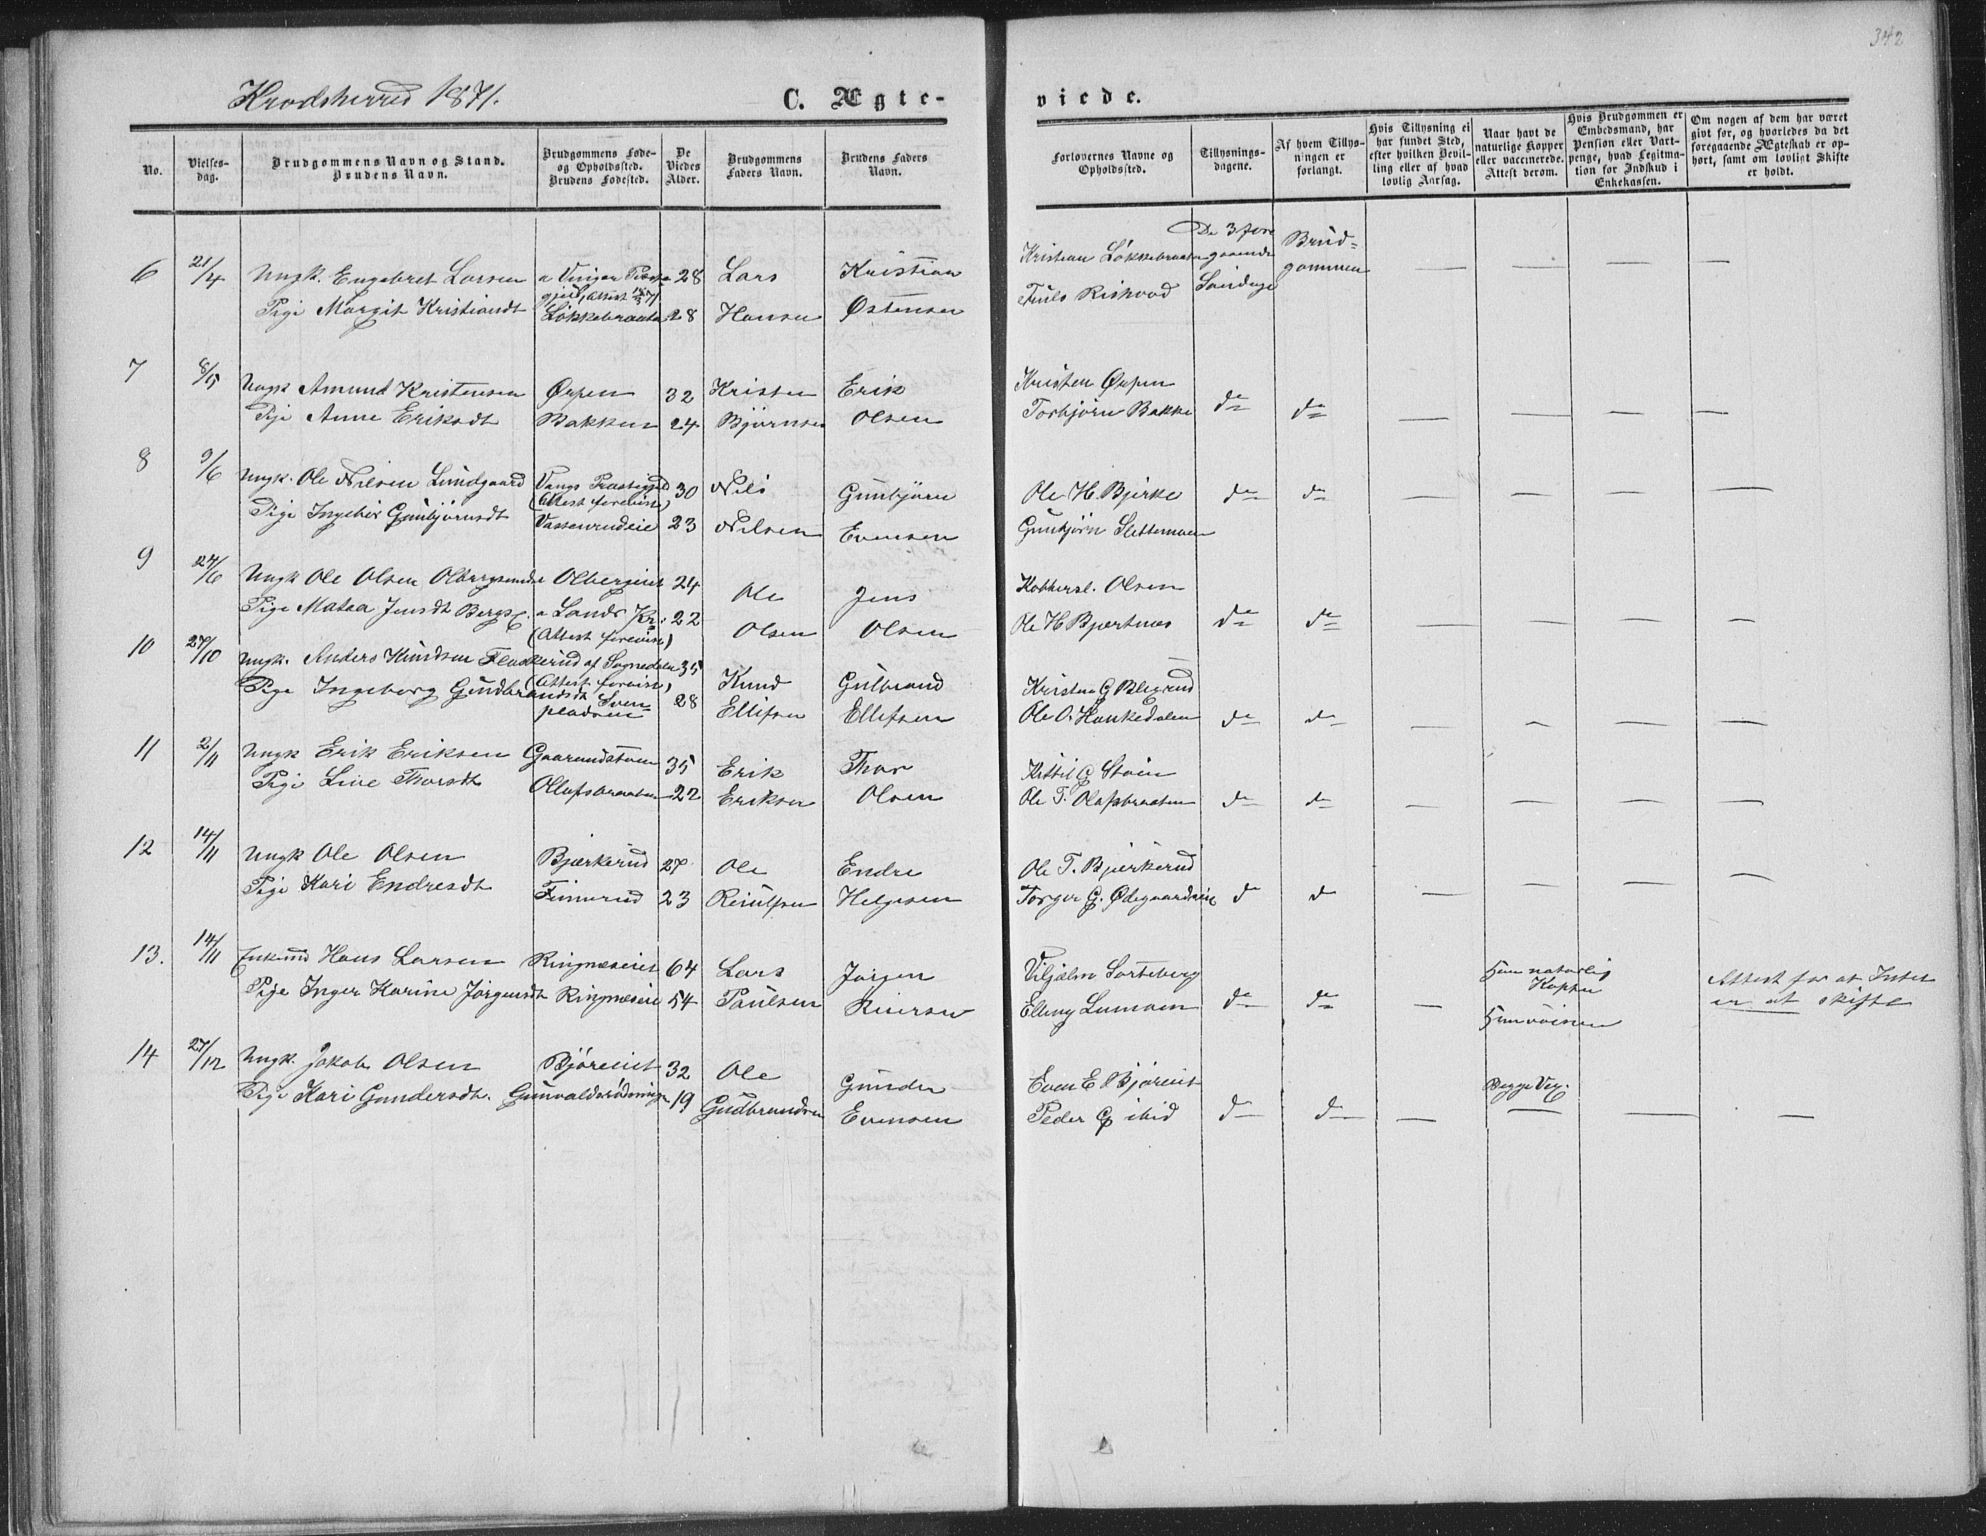 342
Krodsherred 1871.
C. Ægte-
viede.
No.
Vielses-
dag.
Brudgommens Navn og Stand.
Brudens Navn.
Brudgommens Føde-
og Opholdssted.
Brudens Fødested.
De
Viedes
Alder.
Brudgommens
Faders Navn.
Brudens Faders
Navn.
Forlovernes Navne og
Opholdssted.
Tillysnings-
dagene.
Af hvem Tillys-
ningen er
forlangt.
Hvis Tillysning ei
har fundet Sted,
efter hvilken Bevil-
ling eller af hvad
lovlig Aarsag.
Naar havt de
naturlige Kopper
eller vaccinerede.
Attest derom.
Hvis Brudgommen er
Embedsmand, har
Pension eller Vart-
penge, hvad Legitima-
tion for Indskud i
Enkekassen.
Om nogen af dem har været
givt før, og hvorledes da det
foregaaende Ægteskab er op-
hørt, samt om lovligt Skifte
er holdt.
6 21/4 Ungk. Engebret Larsen 28 Lars Kristian
Pige Margit Kristiansdt Løkkebraaten 28 Hansen Østensen
Kristian Løkkebraaten
De 3 fore
gaaende
Søndage
Brud-
gommen
7 8/5 Ungk Amund Kristensen Ørpen 32 Kristen Erik
Pige Anne Eriksdt Bakken 24 Bjørnsen Olsen
Kristen Ørpen
Torbjørn Bakke do do
8 9/6 Ungk. Ole Nilsen Lundgaard Vangs Præstegjeld 30 Nils Gunbjørn
(Attest forevist)
Pige Ingebør Gunbjørnsdt 23 Nilsen Evensen
Ole H. Bjerke do do
Gunbjørn Slettemoen
9 24/6 Ungk Ole Olsen Olbergseiet 24 Ole Jens
Pige Mataa Jensdt a Lands 22 Olsen Olsen
(Attest forevist)
Olsen
Ole H Bjertnes do do
10 27/10 Ungk. Anders Knudsen Flaskerud af Sognedalen 35 Knud Gulbrand
(Attest forevist)
Pige Ingeborg Gundbrandsdt Sven-
pladsen 28 Ellifsen Ellefsen
Ole O. Hankedalen do do
11 2/11 Ungk Erik Eriksen 35 Erik Thor
Pige Live Thorsdt Olafsbraaten 22 Eriksen Olsen
Kittil G Støin
Ole T. Olafsbraaten do do
12 14/11 Ungk Ole Olsen Bjærkerud 27 Ole Endre
Pige Kari Endresdt Finnerud 23 Reiulfsen Helgesen
Ole T. Bjerkerud
Torger G. Ødegaardseie do do
13. 14/11 Enkemd Hans Larsen Ringneseiet 64 Lars Jørgen
Pige Inger Karine Jørgensdt Ringneseie 54 Paulsen Reiersen
Viljalm Sorteberg
Elling Lumoen do do
Han naturlig
Kopper
Attest for at Intet
er at skifte
14 27/12 Ungk. Jakob Olsen Bjøreeiet 32 Ole Gunder
Pige Kari Gundersdt. Gunvaldsrødningen 19 Gudbrandsen Evensen
Even E Bjøreiet
Peder G ibid do do
Begge Vax.